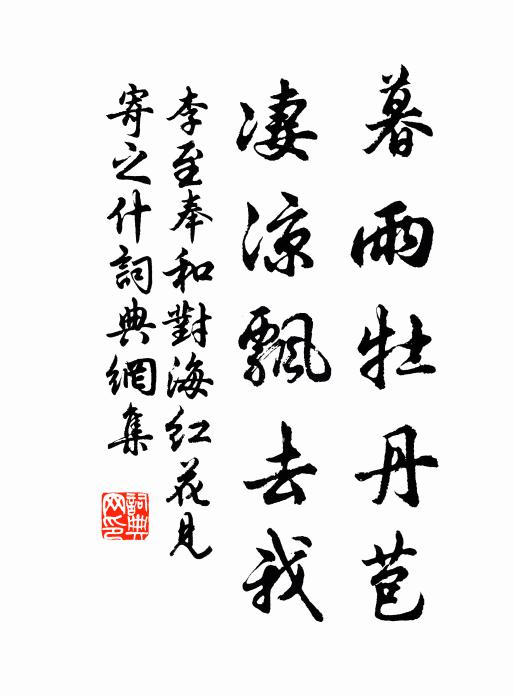 暮雨牡丹芭
凄涼飄去我
李至奉和對海红花見
寄之什詞典網集
詞典网印